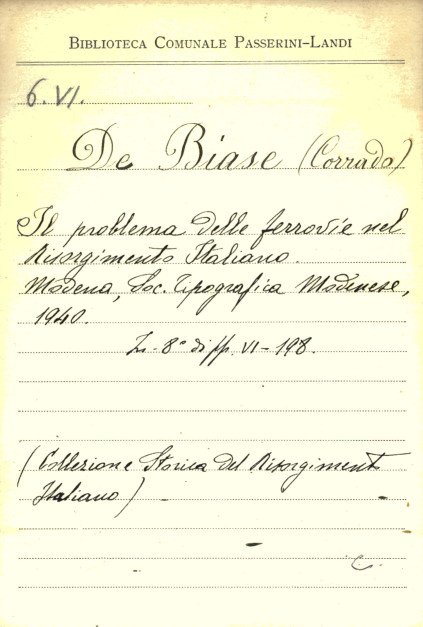 BIBLIOTECA COMUNALE PASSERINI-LANDI
6.VI.
De Biase (Corrado)
Il problema delle ferrovie nel
Risorgimento Italiano.
Modena, Soc. Tipografica Modenese,
1940.
In-8° di pp. VI-198.
(Collezione Storica del Risorgimento
Italiano)
C.